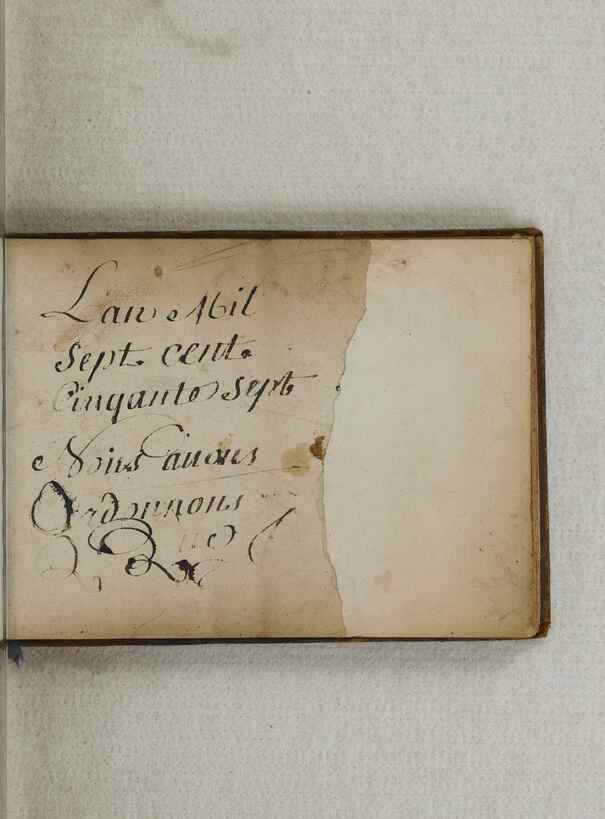 Lan Mil
sept cent
Cinquante sept
Nous avons
Ordonnons